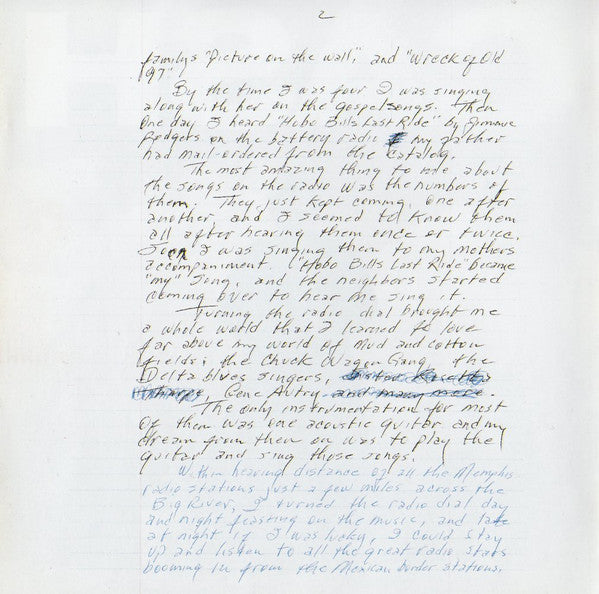 2
family's "Picture on the wall," and "Wreck of Old
'97"
By the time I was four I was singing
along with her on the gospel songs. Then
one day I heard "Hobo Bills Last Ride" by Jimmie
Rodgers on the battery radio my father
had mail-ordered from the catalog.
The most amazing thing to me about
the songs on the radio was the numbers of
them. They just kept coming, one after
another, and I seemed to know them
all after hearing them once or twice.
Soon I was singing them to my mothers
accompaniment. "Hobo Bills Last Ride became
"my" song, and the neighbors started
coming over to hear me sing it.
Turning the radio dial brought me
a whole world that I learned to love
far above my world of mud and cotton
fields; the Chuck Wagon Gang, the
Delta blues singers, Sister Rosetta
Tharpe, Gene Autry and many more.
The only instrumentation for most
of them was one acoustic guitar and my
dream from then on was to play the
guitar and sing those songs.
Within hearing distance of all the Memphis
radio stations just a few miles across the
Big River, I turned the radio dial day
and night feasting on the music, and late
at night if I was lucky, I could stay
up and listen to all the great radio stars
booming in from the Mexican border stations.